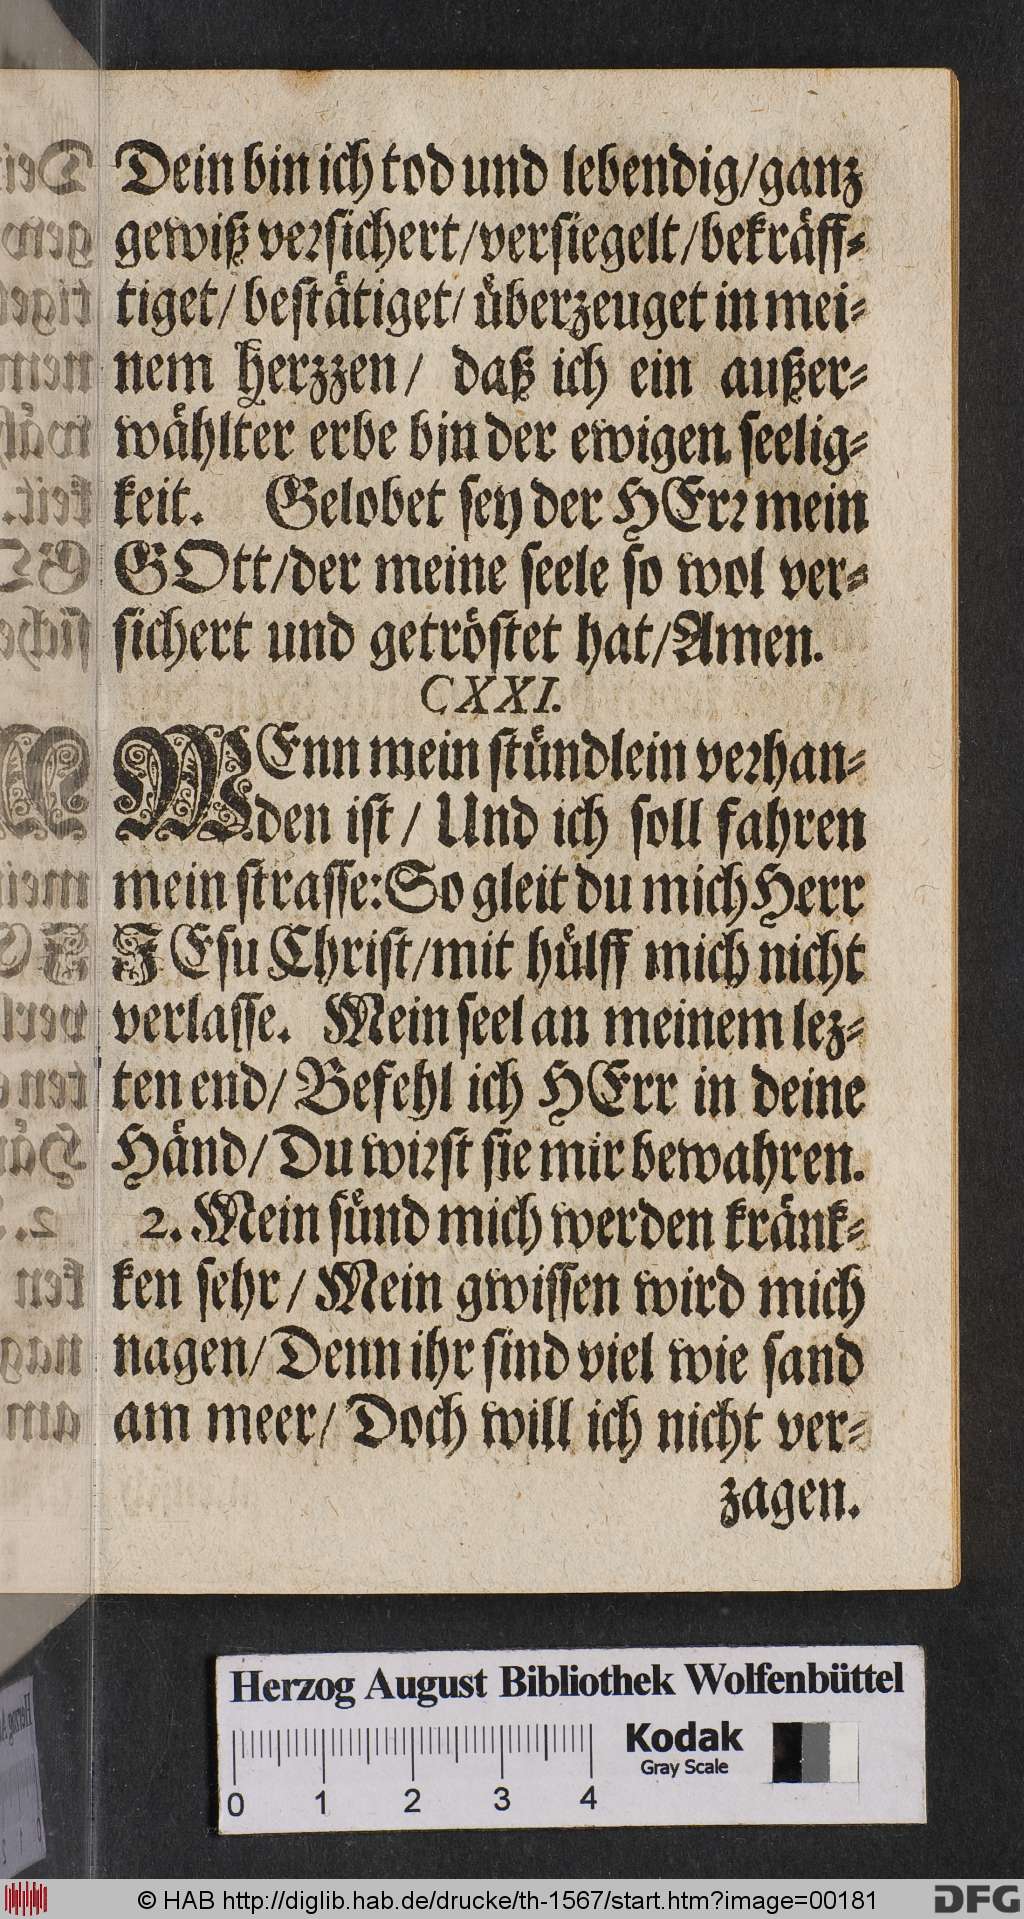 Dein bin ich tod und lebendig/ganz
gewiß versichert/versiegelt/bekräff-
tiget/ bestätiget/ überzeuget in mei-
nem herzzen/ daß ich ein außer-
wählter erbe bin der ewigen seelig-
keit. Gelobet sey der HErr mein
GOtt/der meine seele so wol ver-
sichert und getröstet hat/Amen.
CXXI.
WEnn mein stündlein verhan-
den ist / Und ich soll fahren
mein strasse: So gleit du mich Herr
JEsu Christ/mit hülff mich nicht
verlasse. Mein seel an meinem lez-
ten end/ Befehl ich HErr in deine
Händ/ Du wirst sie mir bewahren.
2. Mein sünd mich werden kränk-
ken sehr / Mein gwissen wird mich
nagen/ Denn ihr sind viel wie sand
am meer/ Doch will ich nicht ver-
zagen.
Herzog August Bibliothek Wolfenbüttel
Kodak
Gray Scale
0 1 2 3 4
© HAB http://diglib.hab.de/drucke/th-1567/start.htm?image=00181
DFG